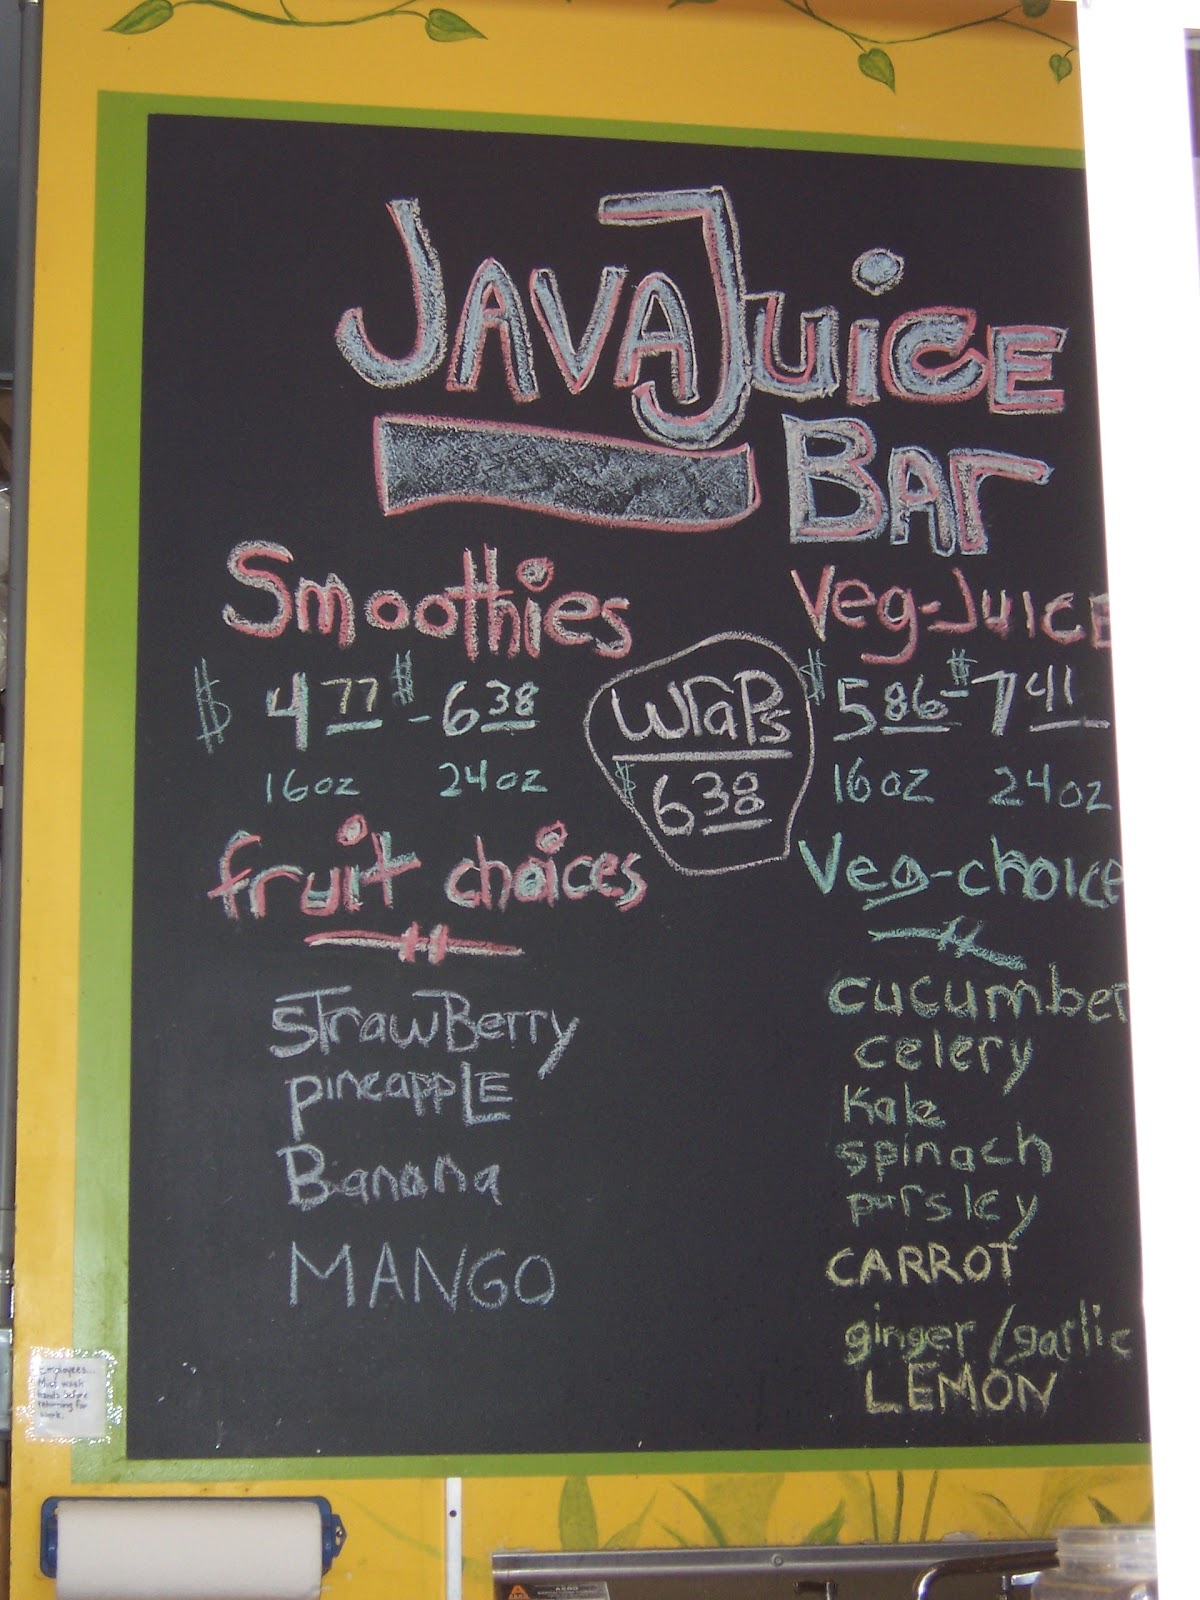 JAVA JuicE
BAr
Smoothies
$ 4.77 $ - 6.38
16oz 24oz
wraPs
$ 6.38
Veg-JuicE
$ 5.86 - $ 7.41
16oz 24oz
fruit choices
STrawBerry
pineappLE
Banana
MANGO
Veg-choice
cucumber
celery
Kale
spinach
parsley
CARROT
ginger/garlic
LEMON
Employees...
Must wash
hands before
returning for
work.